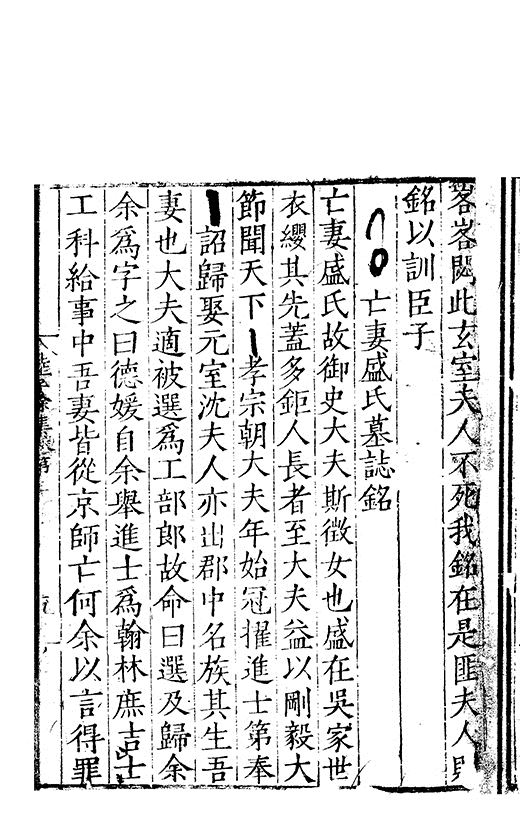 峉峉閟此玄室夫人不死我銘在是匪夫人則
銘以訓臣子
亡妻盛氏墓誌銘
亡妻盛氏故御史大夫斯徵女也盛在吳家世
衣纓其先蓋多鉅人長者至大夫益以剛毅大
節聞天下孝宗朝大夫年始冠擢進士第奉
詔歸娶元室沈夫人亦出郡中名族其生吾
妻也大夫適被選爲工部郎故命曰選及歸余
余爲字之曰德媛自余舉進士爲翰林庶吉士
工科給事中吾妻皆從京師亡何余以言得罪